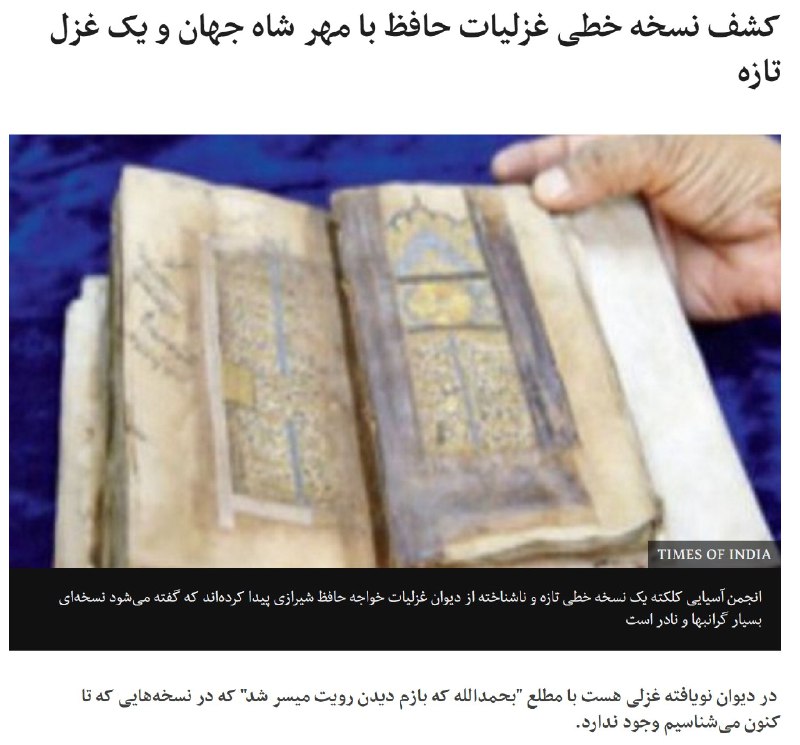 کشف نسخه خطی غزلیات حافظ با مهر شاه جهان و یک غزل
تازه
TIMES OF INDIA
انجمن آسیایی کلکته یک نسخه خطی تازه و ناشناخته از دیوان غزلیات خواجه حافظ شیرازی پیدا کرده‌اند که گفته می‌شود نسخه‌ای
بسیار گرانبها و نادر است
در دیوان نویافته غزلی هست با مطلع "بحمدالله که بازم دیدن رویت میسر شد" که در نسخه‌هایی که تا
کنون می‌شناسیم وجود ندارد.